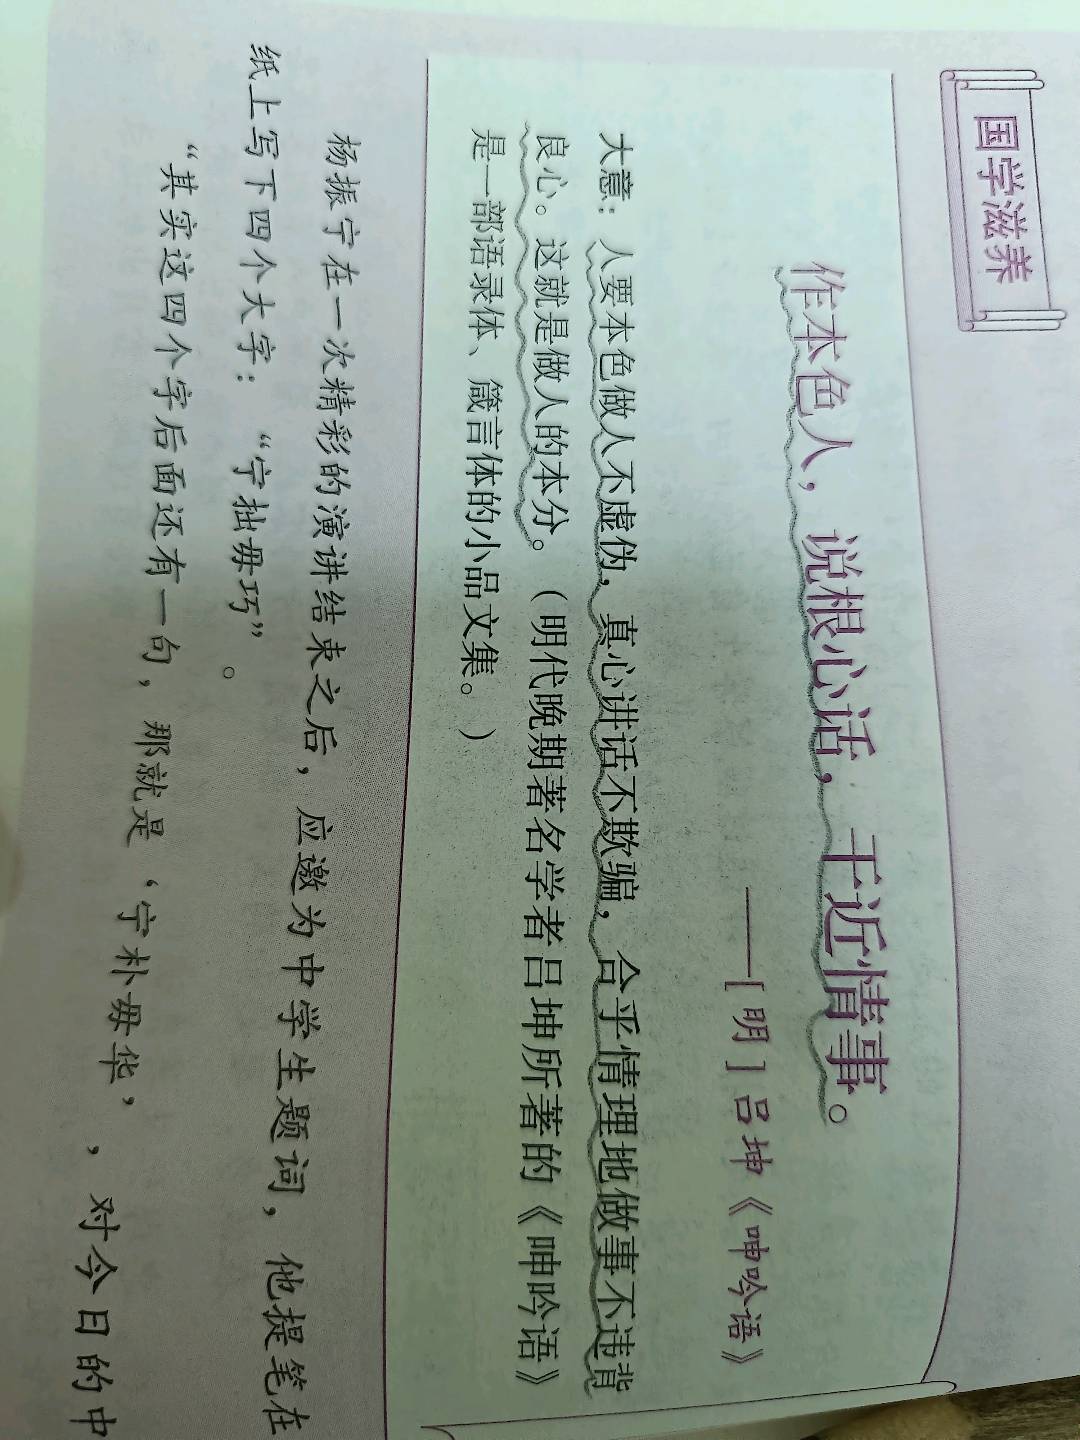 国学滋养
作本色人，说根心话，干近情事。
——[明]吕坤《呻吟语》
大意：人要本色做人不虚伪，真心讲话不欺骗，合乎情理地做事不违背
良心。这就是做人的本分。（明代晚期著名学者吕坤所著的《呻吟语》
是一部语录体、箴言体的小品文集。）
杨振宁在一次精彩的演讲结束之后，应邀为中学生题词，他提笔在
纸上写下四个大字：“宁拙毋巧”。
“其实这四个字后面还有一句，那就是‘宁朴毋华’，对今日的中